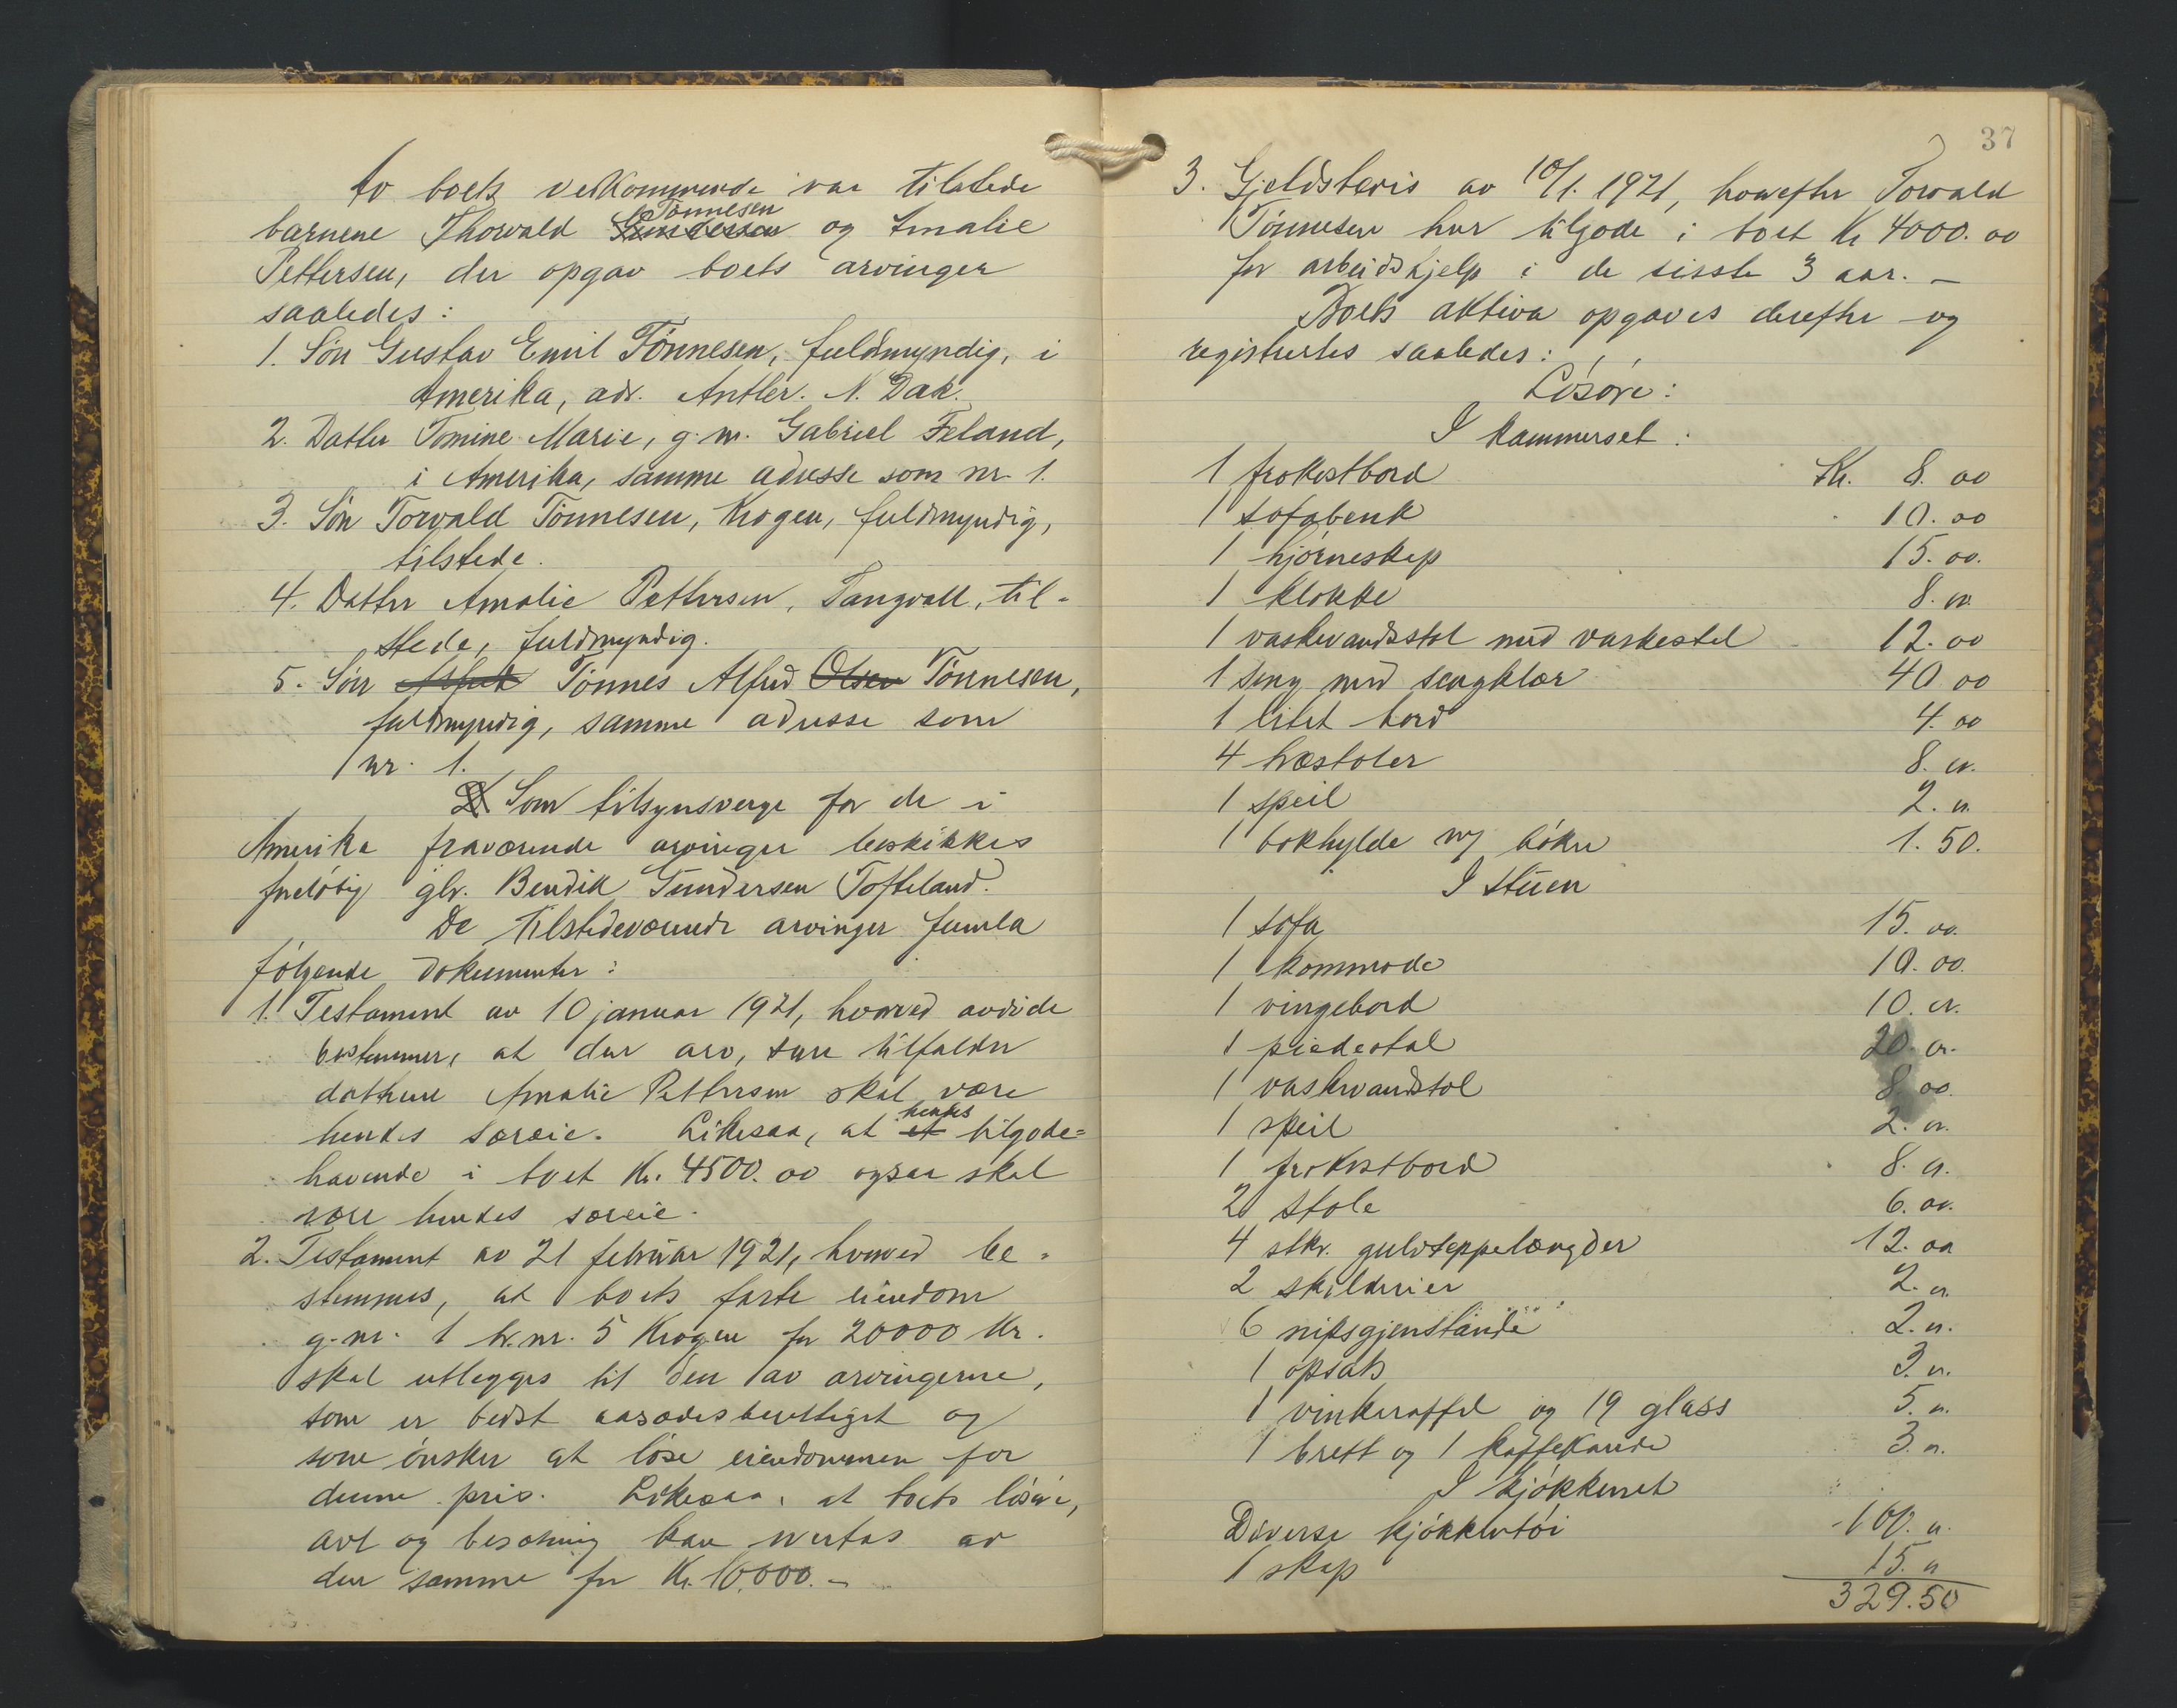 Av boets vedkommende var tilstede
barnene Thorvald Gundersen Tønnesen og Amalie
Pettersen, der opgav boets arvinger
saaledes:
1. Søn Gustav Emil Tönnesen, fuldmyndig, i
Amerika, adr. Antler. N. Dak.
2. Datter Tomine Marie, g. m. Gabriel Feland,
i Amerika, samme adresse som nr. 1.
3. Søn Torvald Tönnesen, Krogen, fuldmyndig,
tilstede.
4. Datter Amalie Pettersen, Tangvall, til-
stede, fuldmyndig.
5. Søn Alfred Tönnes Alfred Olsen Tönnesen,
fuldmyndig, samme adresse som
nr. 1.
Som tilsynsverge for de i
Amerika fraværende arvinger beskikkes
foreløbig gbr. Bendik Gundersen Tofteland.
De tilstedeværende arvinger fremla
følgende dokumenter:
1. Testament av 10 januar 1921, hvorved avdöde
bestemmer, at den arv, som tilfalder
datteren Amalie Pettersen skal være
hendes særeie. Likesaa, at et hendes tilgode-
havende i boet Kr. 4500.00 ogsaa skal
være hendes særeie.
2. Testament av 21 februar 1921, hvorved be-
stemmes, at boets faste eiendom
g. nr. 1 br. nr. 5 Krogen for 20000 Kr.
skal utlegges til den av arvingerne,
som er bedst aasædesberettiget og
som ønsker at løse eiendommen for
denne pris. Likesaa, at boets løsøre,
avl og besætning kan overtas av
den samme for Kr. 10,000.-
37
3. Gjeldsbevis av 10/1. 1921, hvorefter Torvald
Tönnesen har tilgode i boet Kr 4000.00
for arbeidshjelp i de sisste 3 aar. -
Boets aktiva opgaves derefter og
registrertes saaledes:
Løsøre:
I kammerset:
1 frokostbord Kr. 8.00
1 sofabenk 10.00
1 hjørneskap 15.00.
1 klokke 8.00
1 vaskevandsstol med vaskestel 12.00
1 seng med sengklær 40 00
1 litet bord 4.00
4 træstoler 8.00.
1 speil 2.00
1 bokhylde m/ bøker 1.50.
I stuen
1 sofa 15.00.
1 kommode 10.00.
1 vingebord 10.00.
1 piedestal 20.00.
1 vaskevandstol 8.00.
1 speil 2.00.
1 frokostbord 8.00.
2 stole 6.00.
4 stkr. gulvteppelængder 12.00
2 skilderier 2.00.
6 nipsgjenstande 2.00.
1 opsats 3.00.
1 vinkaraffel og 19 glass 5.00.
1 brett og 1 kaffekande 3.00.
I kjøkkenet
Diverse kjøkkentøi 100.00
1 skap 15.00
329.50